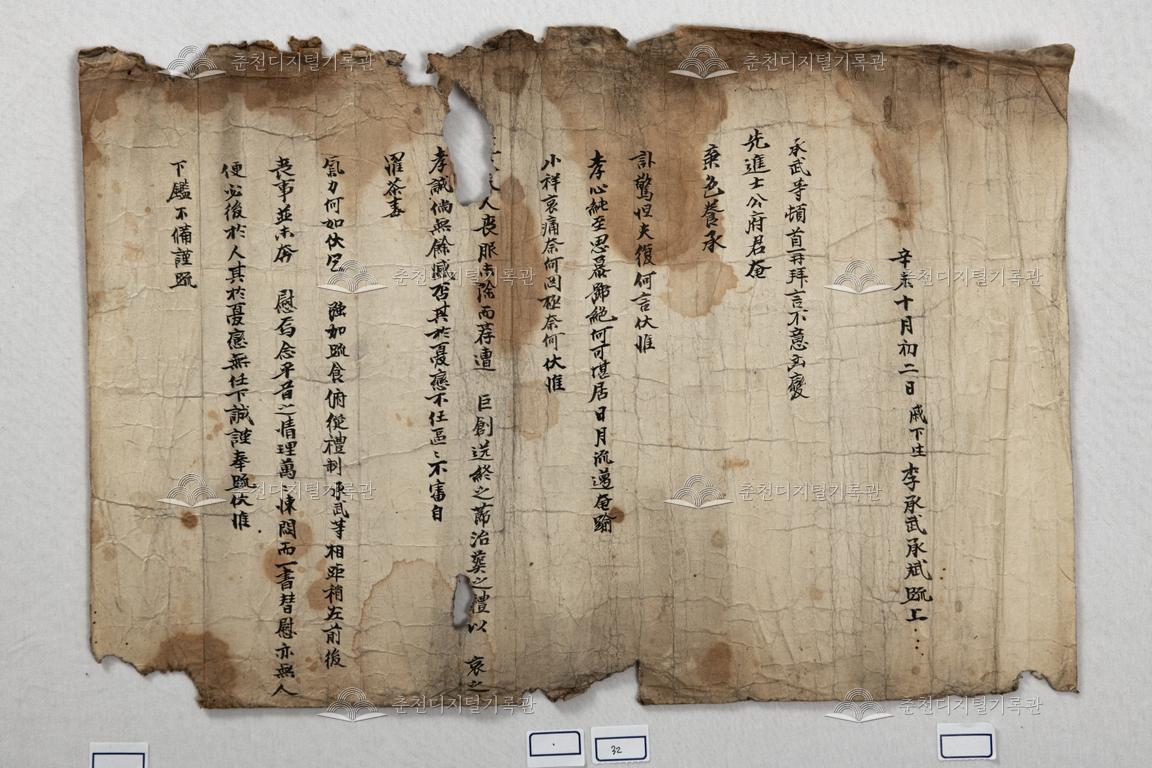 辛亥十月初二日 戚下生 李承武承斌疏上
承武等頓首再拜言不意凶變
先進士公府君奄
棄色養承
訃驚怛夫復何言伏惟
孝心純至思慕號絶何可堪居日月流邁奄踰
小祥哀痛奈何罔極奈何伏惟
人喪服未除而荐遭 巨創送終之節治葬之禮以 哀之
孝誠倘無餘憾否其於憂戀不任區〻不審自
罹荼毒
氣力何如伏乞 强加疏食俯從禮制承武等相距稍左前後
喪事並未奔 慰焉念平昔之情理萬悚悶而一書替慰亦無人
便必後於人其於憂戀無任下誠謹奉疏伏惟
下鑑不備謹疏
춘천디지털기록관
춘천디지털기록관
춘천디지털기록관
춘천디지털기록관
춘천디지털기록관
춘천디지털기록관
춘천디지털기록관
춘천디지털기록관
32